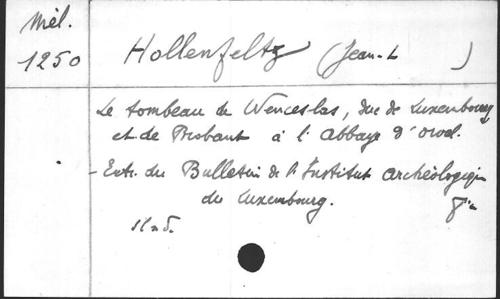 Mél.
1250
Hollenfeltz (Jean-L )
Le tombeau de Wenceslas, duc de Luxembourg
et de Brabant à l'Abbaye d'Orval.
- Extr. du Bulletin de l'Institut archéologique
du Luxembourg. 8°
Sl n d.